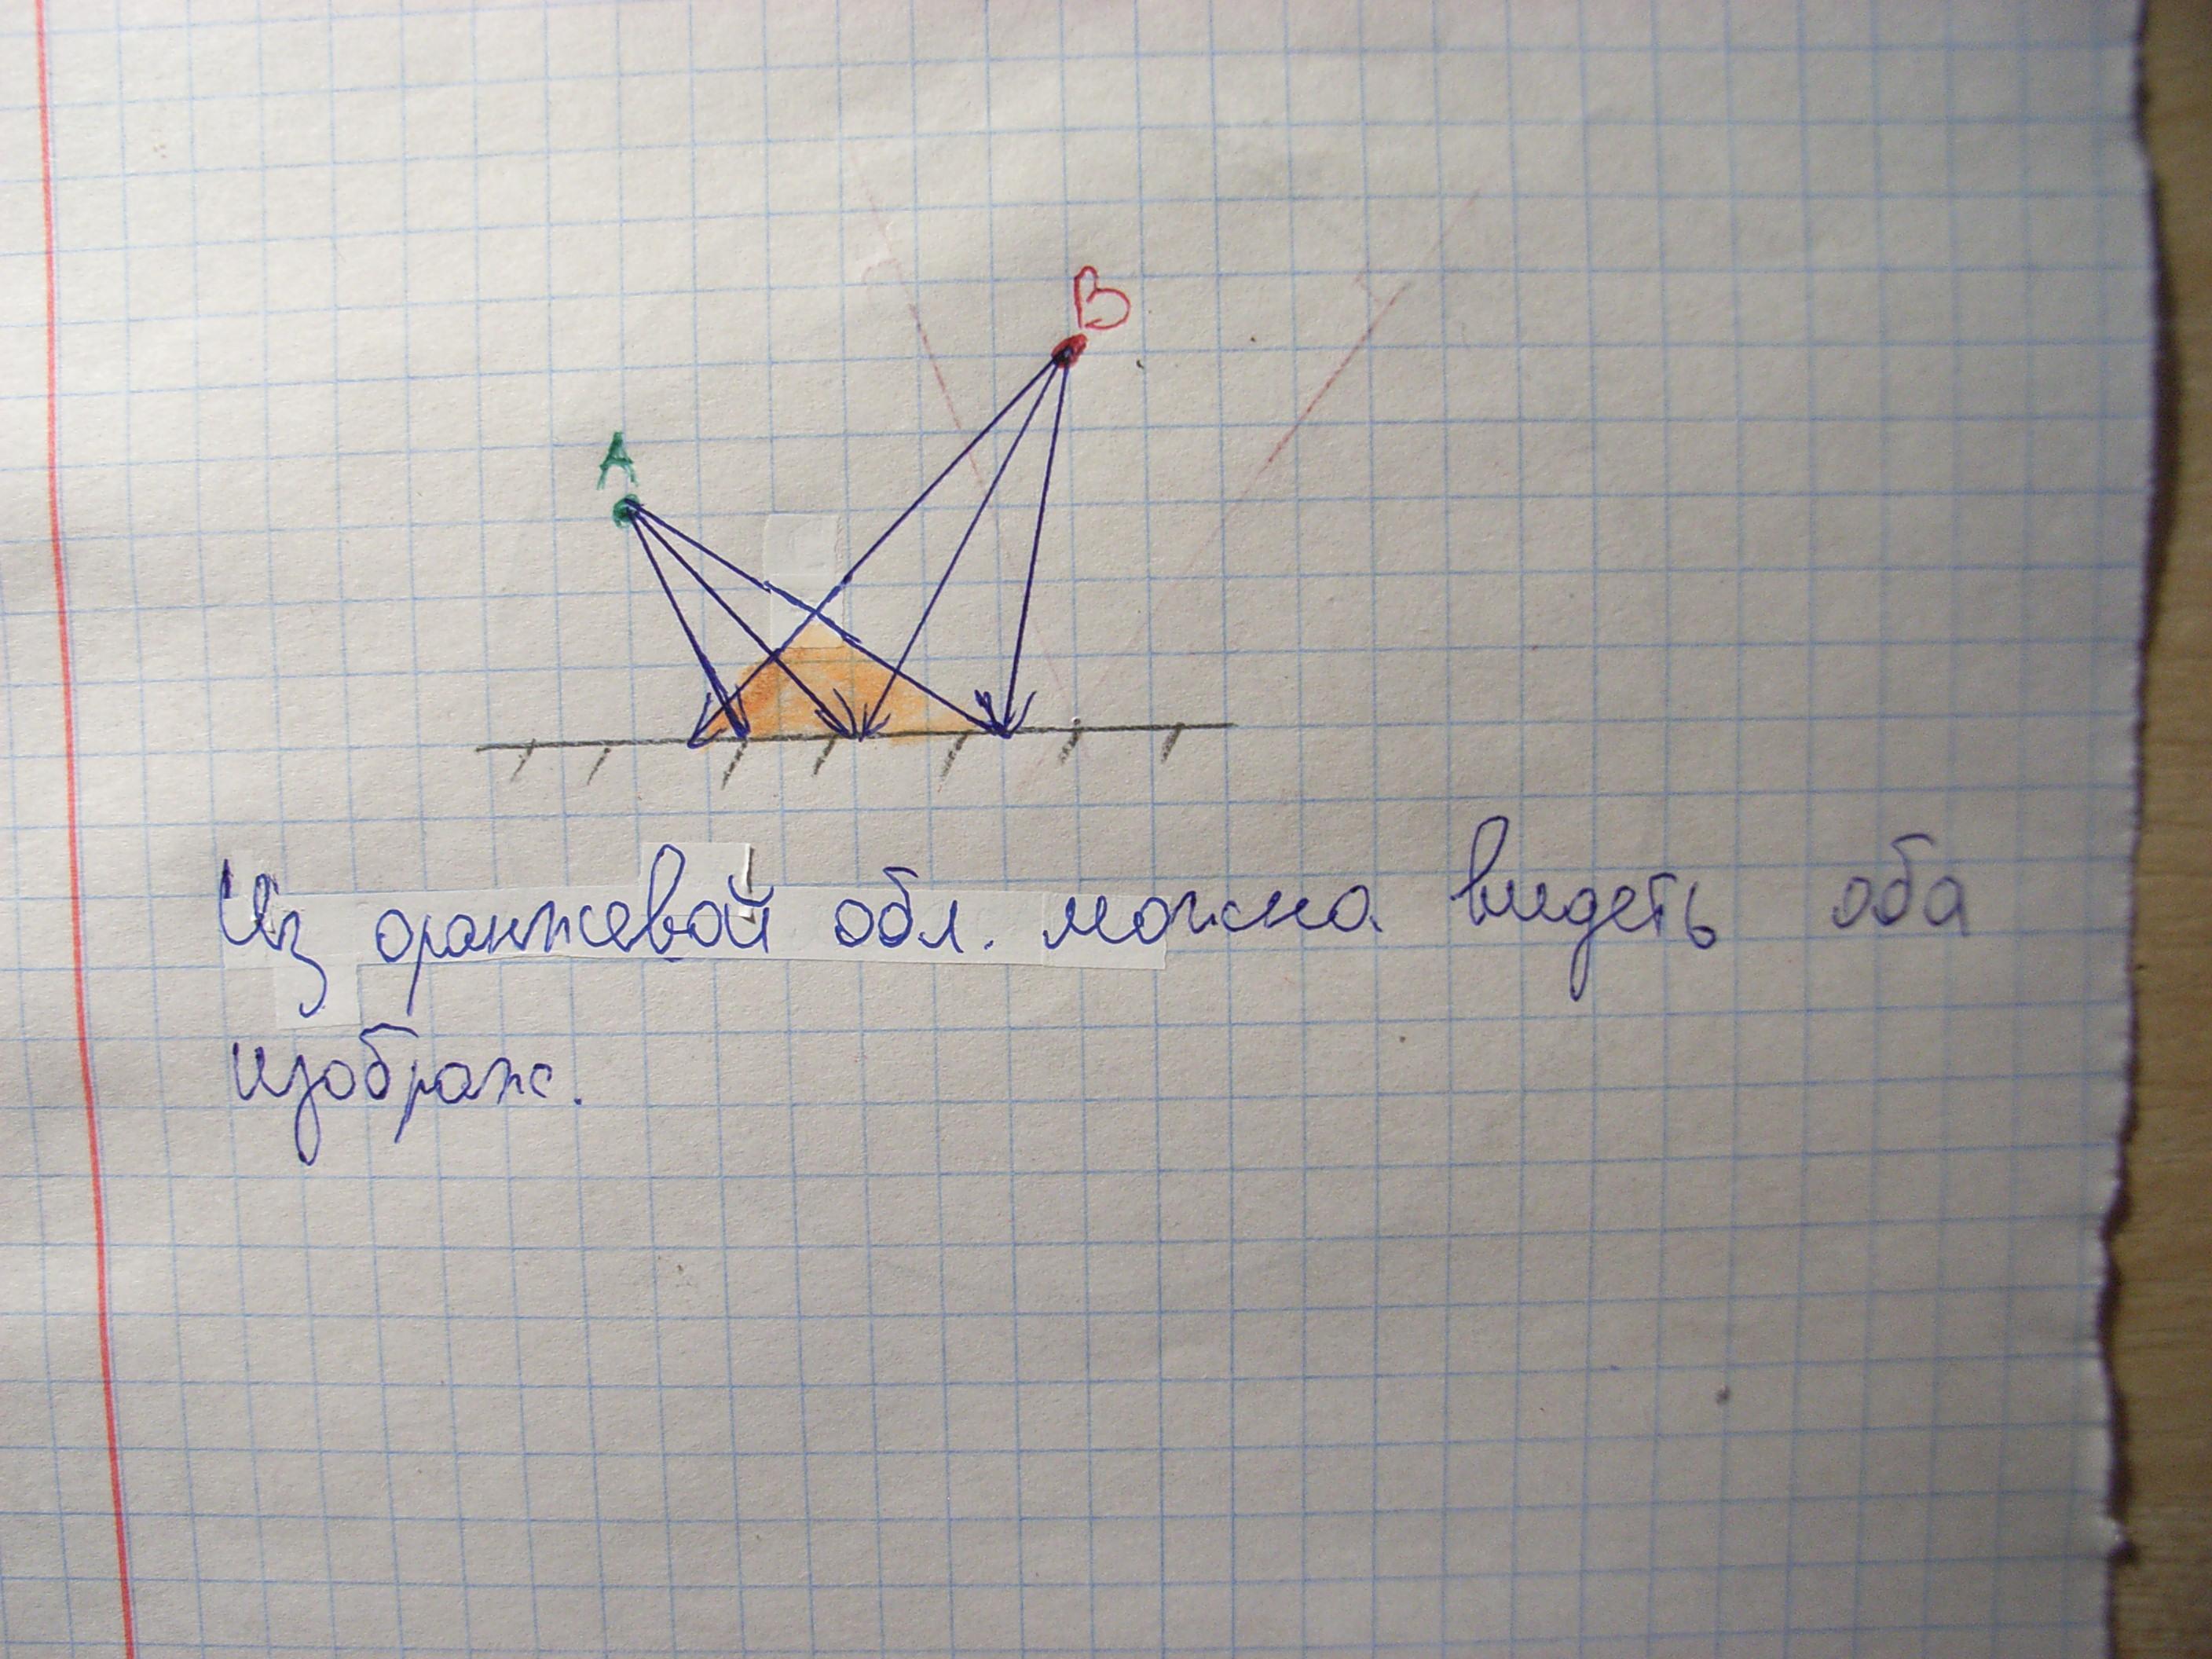 B
A
Из оранжевой обл. можно видеть оба
изображ.